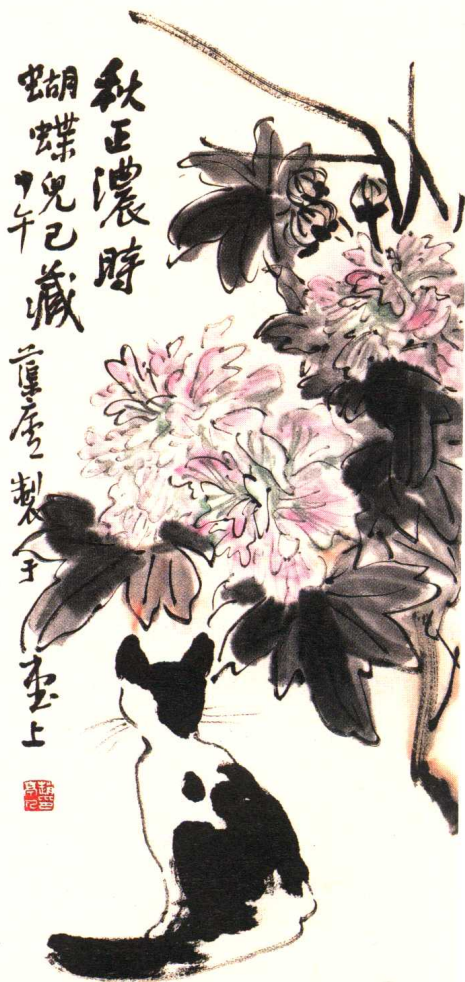 秋正濃時
蝴蝶兒已藏
甲午
製于
上